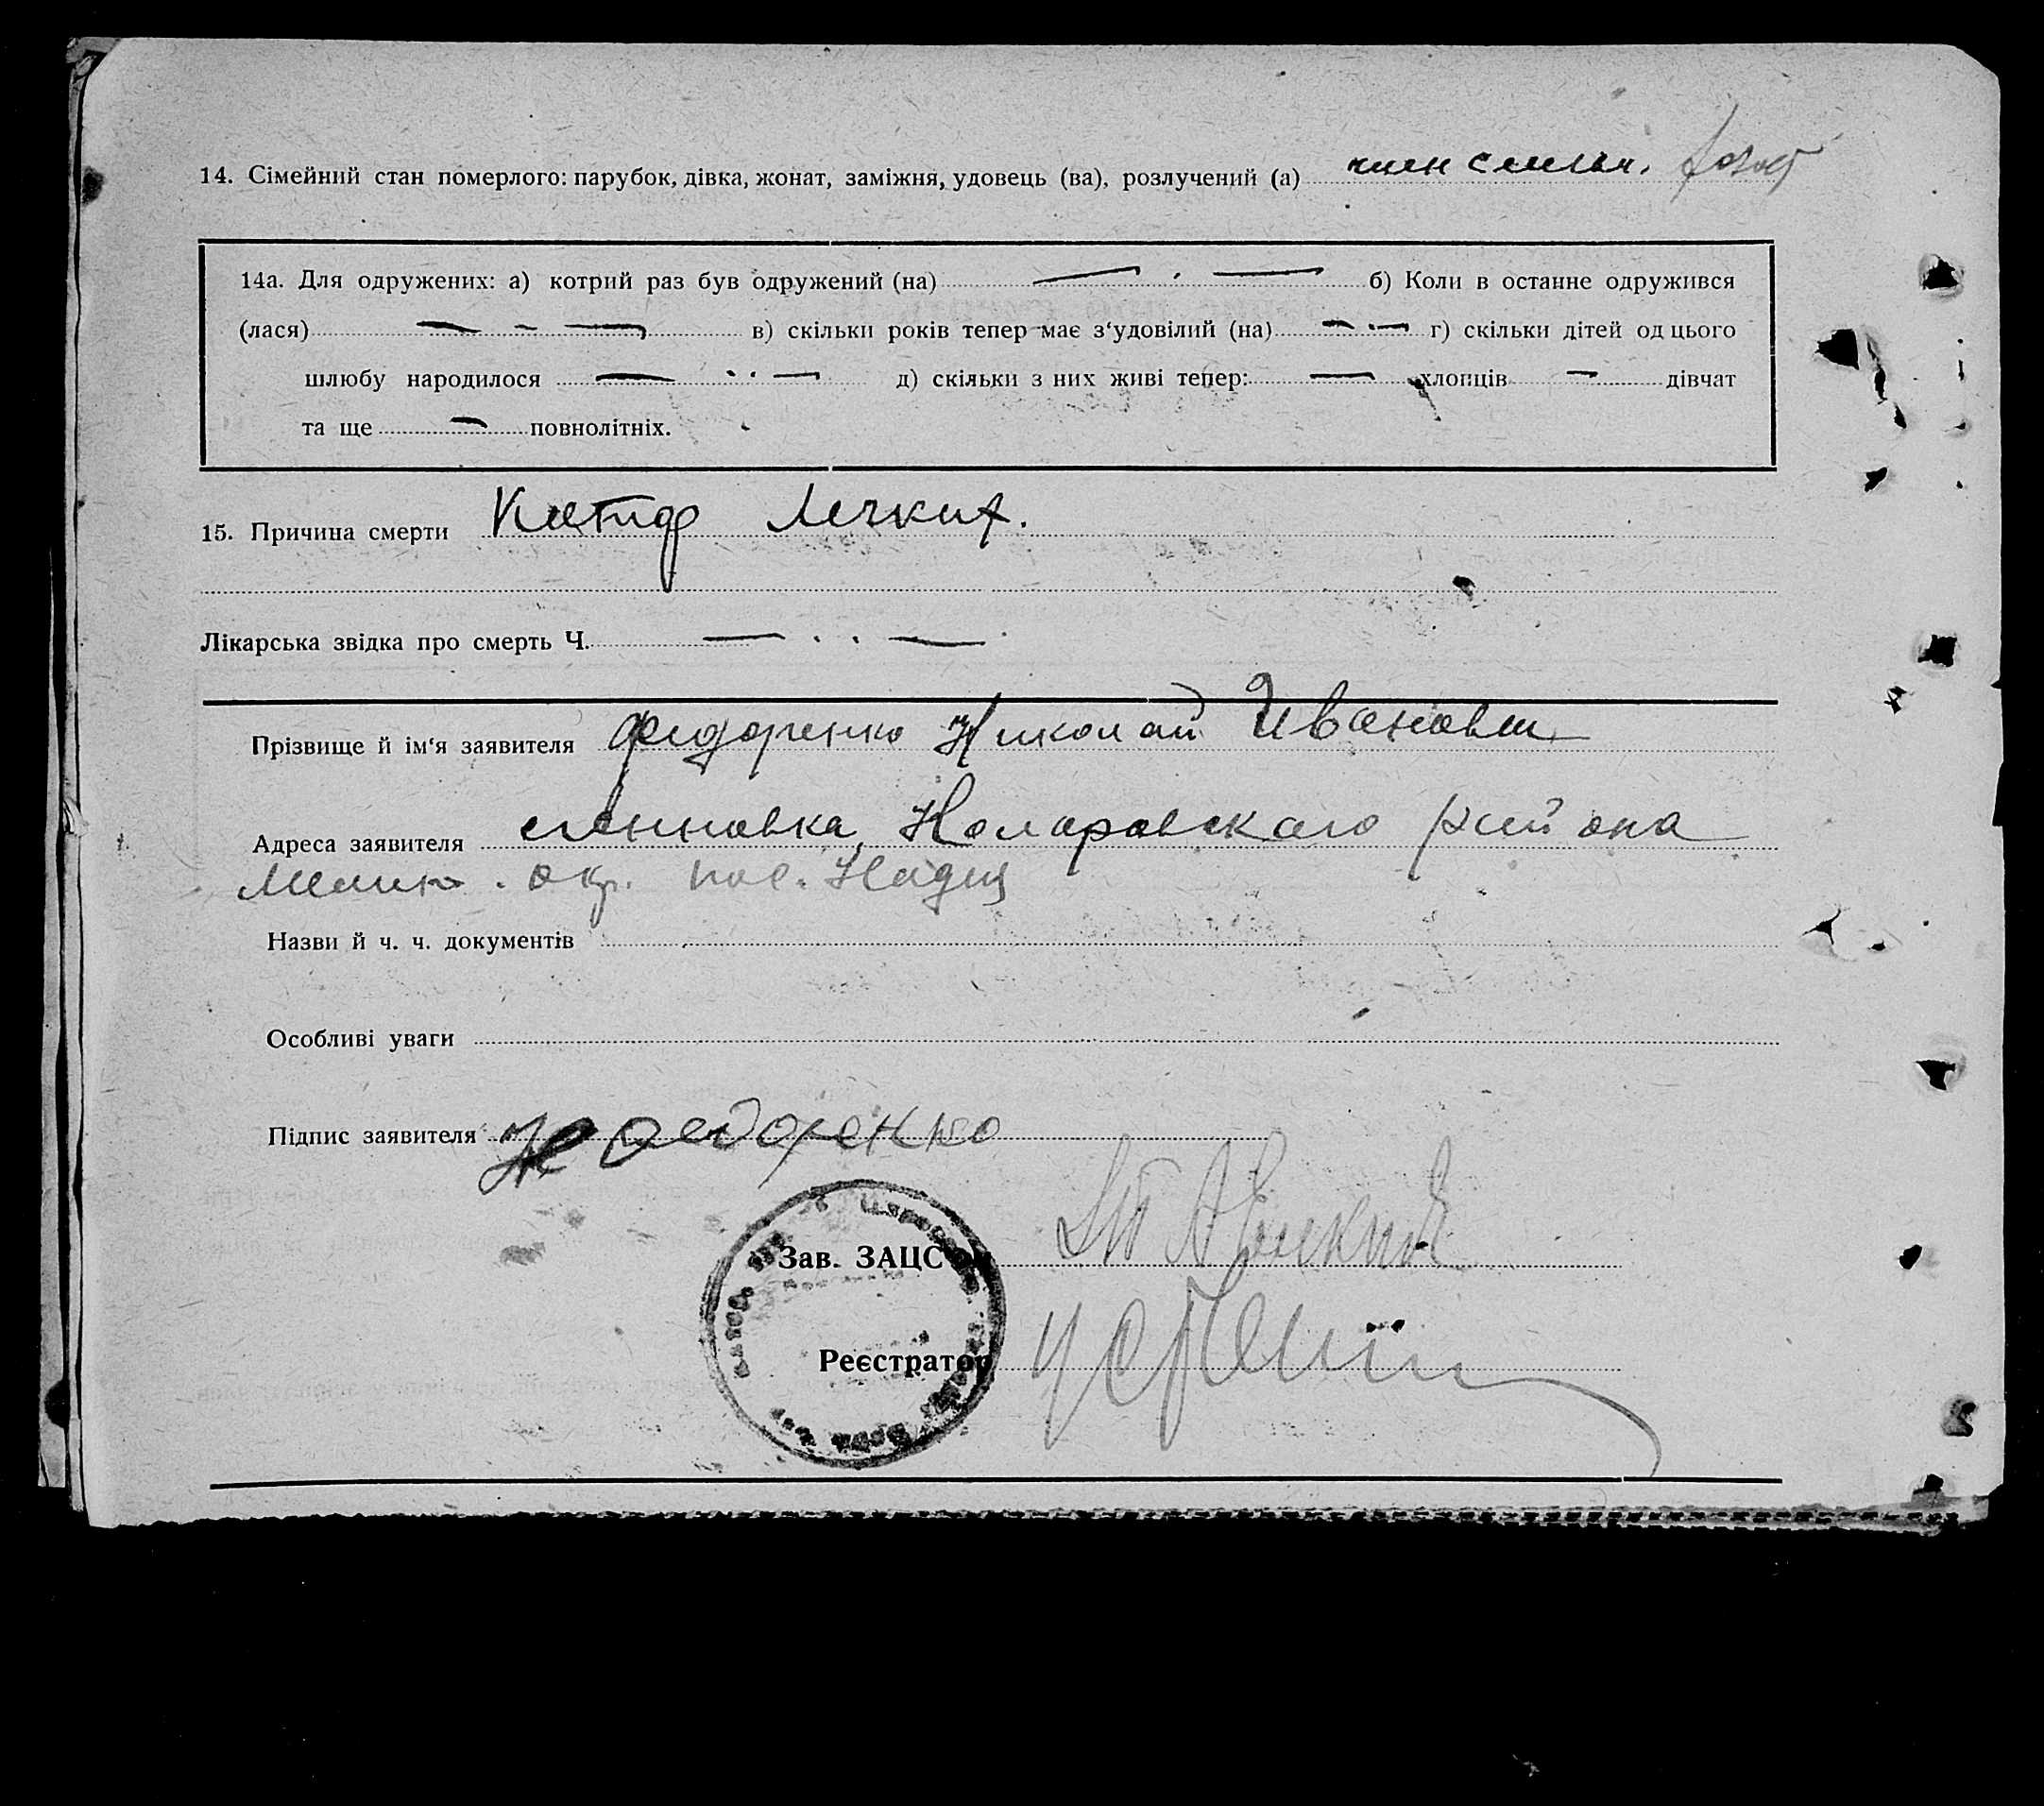 14. Сімейний стан померлого: парубок, дівка, жонат, заміжня, удовець (ва), розлучений (а) член семьи.
14а. Для одружених: а) котрий раз був одружений (на) — . — б) Коли в останнє одружився
(лася) — - — в) скільки років тепер має з‘удовілий (на) — — г) скільки дітей од цього
шлюбу народилося — .. — д) скільки з них живі тепер: — хлопців — дівчат
та ще — повнолітніх.
15. Причина смерти Катар Легких.
Лікарська звідка про смерть Ч. — . . —
Прізвище й ім‘я заявителя Федоренко Николай Иванович
Адреса заявителя района
окр. пос.
Назви й ч. ч. документів
Особливі уваги
Підпис заявителя Федоренко
Зав. ЗАЦС
Реєстратор